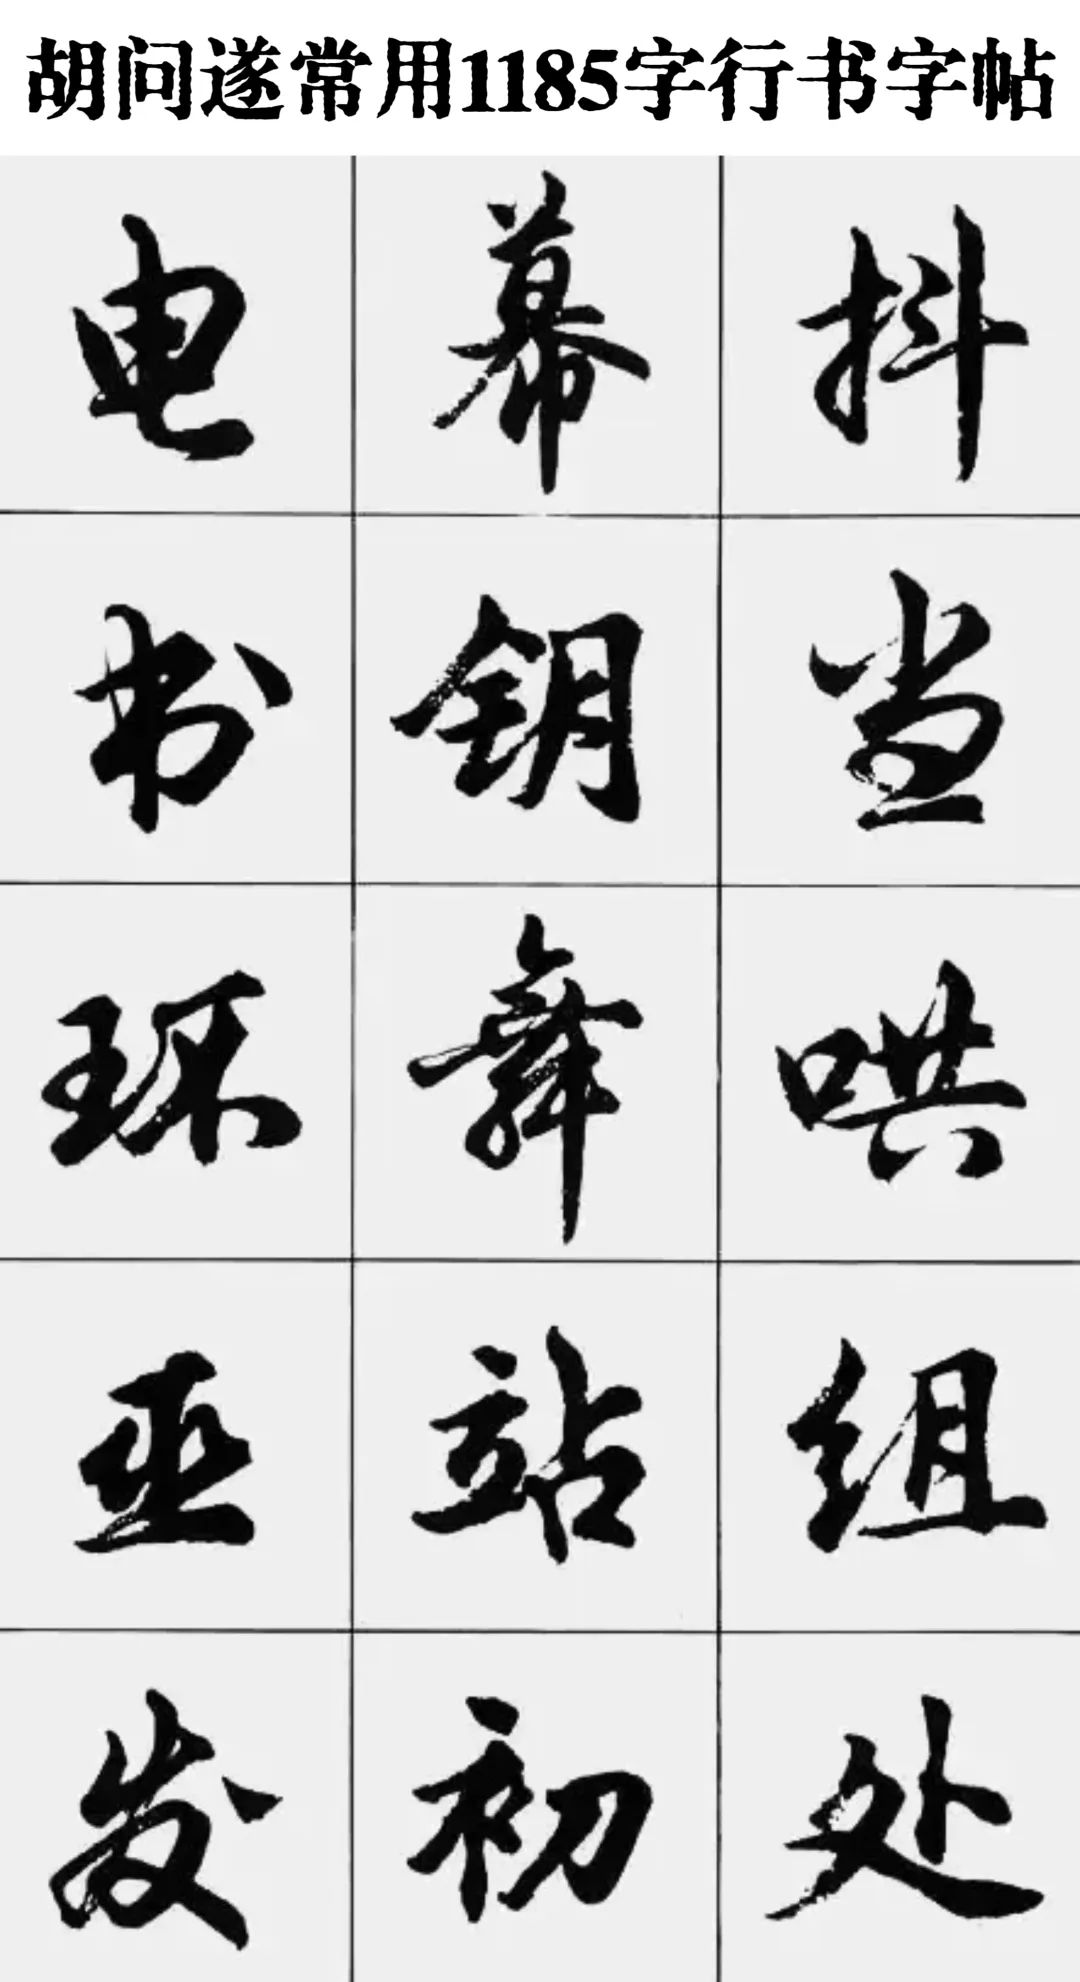 胡问遂常用1185字行书字帖
电幕抖
书钥当
环舞哄
亚站组
发初处